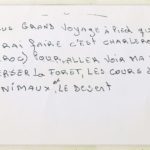 US GRAND VOYAGE à PIED QU
RAI FAIRE C'EST CHARLERO
ROC) POUR ALLER VOIR MA
ERSER LA FORET, LES COURS
NIMAUX, et LE DESERT